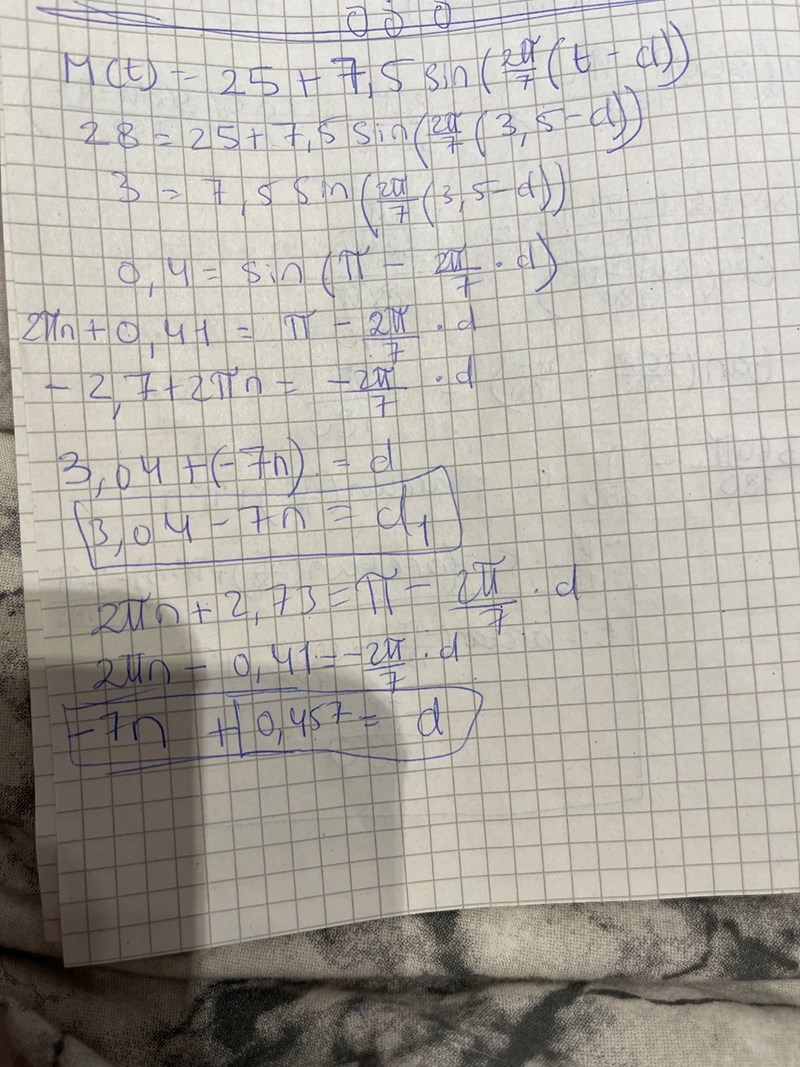 M(t) = 25 + 7,5 sin(2π/7 (t - d))
28 = 25 + 7,5 sin(2π/7 (3,5 - d))
3 = 7,5 sin(2π/7 (3,5 - d))
0,4 = sin(π - 2π/7 · d)
2πn + 0,41 = π - 2π/7 · d
- 2,7 + 2πn = - 2π/7 · d
3,04 + (-7n) = d
3,04 - 7n = d₁
2πn + 2,73 = π - 2π/7 · d
2πn - 0,41 = - 2π/7 · d
-7n + 0,457 = d